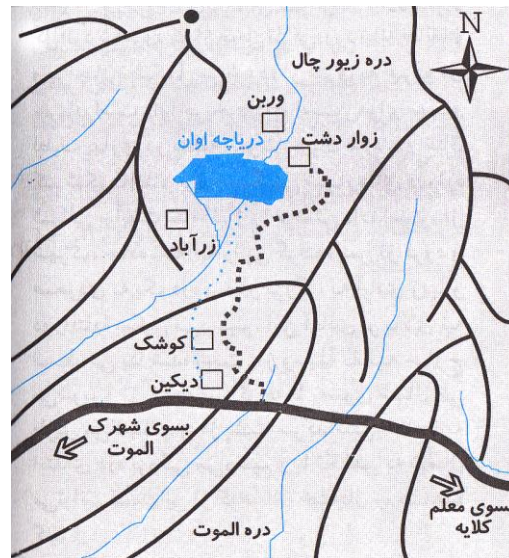 N
دره زیور چال
وربن
دریاچه اوان
زوار دشت
زرآباد
کوشک
دیکین
بسوی شهرک
الموت
بسوی معلم
کلایه
دره الموت